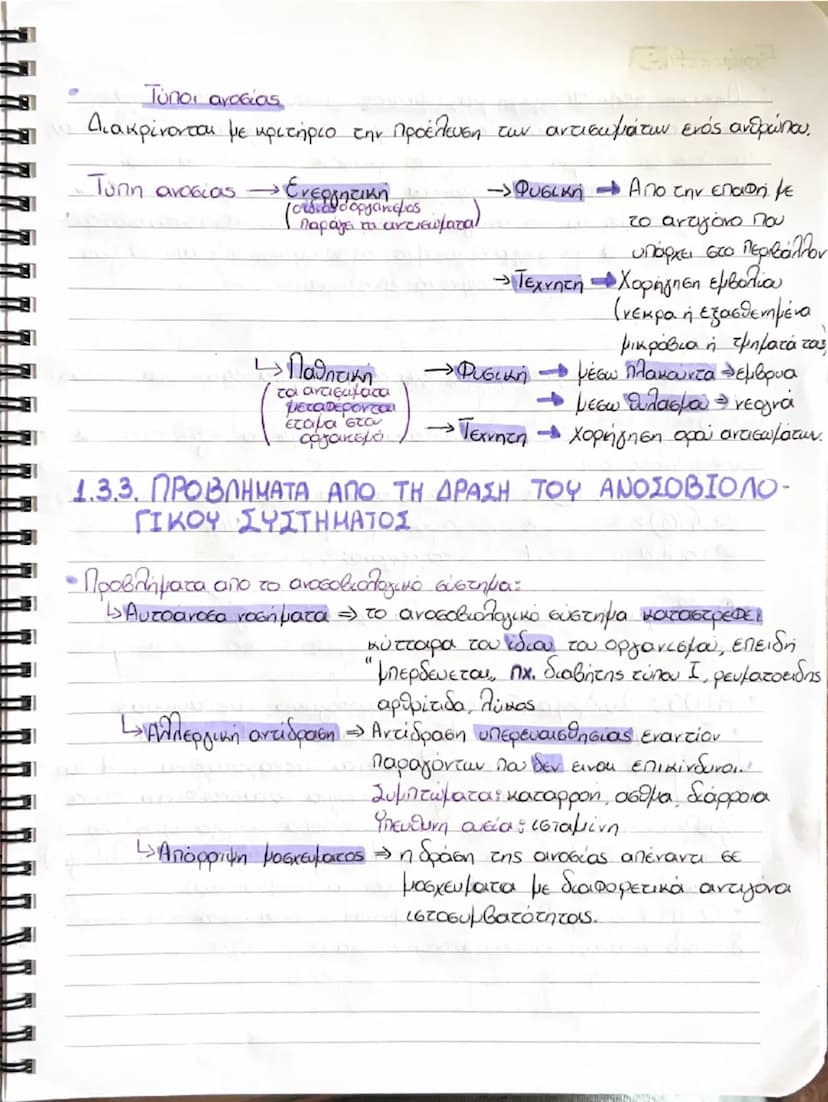 • Τύποι ανοσίας
Διακρίνονται με κριτήριο την προέλευση των αντισωμάτων ενός ανθρώπου.
Τύπη ανοσίας → Ενεργητική → Φυσική → Απο την επαφή με
(ο ίδιος ο οργανισμός το αντιγόνο που
παράγει τα αντισώματα) υπάρχει στο περιβάλλον
→ Τεχνητή → Χορήγηση εμβολίου
(νεκρα ή εξασθενημένα
μικρόβια ή τμηματά τους)
↳ Παθητική → Φυσική → μέσω πλακούντα → έμβρυα
(τα αντισώματα
μεταφέρονται → μέσω θηλασμού → νεογνά
έτοιμα στον
οργανισμό) → Τεχνητη → χορήγηση ορού αντισωμάτων.
1.3.3. ΠΡΟΒΛΗΜΑΤΑ ΑΠΟ ΤΗ ΔΡΑΣΗ ΤΟΥ ΑΝΟΣΟΒΙΟΛΟ-
ΓΙΚΟΥ ΣΥΣΤΗΜΑΤΟΣ
• Προβλήματα απο το ανοσοβιολογικό σύστημα:
↳ Αυτοάνοσα νοσήματα ⇒ το ανοσοβιολογικό σύστημα καταστρέφει
κύτταρα του ίδιου του οργανισμού, επειδή
"μπερδεύεται", πχ. διαβήτης τύπου Ι, ρευματοειδης
αρθρίτιδα, λύκος
↳ Αλλεργική αντίδραση ⇒ Αντίδραση υπερευαισθησιας εναντίον
παραγόντων που δεν ειναι επικίνδυνοι.
Συμπτώματα: καταρροή, ασθμα, διάρροια
Υπευθυνη ουσία: ισταμίνη
↳ Απόρριψη μοσχευματος ⇒ η δράση της ανοσίας απέναντι σε
μοσχευματα με διαφορετικά αντιγόνα
ιστοσυμβατότητας.